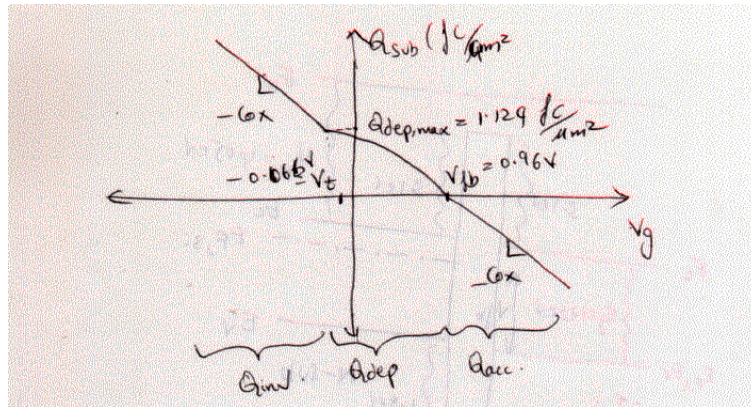 Qsub (fC/μm²
-Cox
Qdep,max = 1.129 fC/μm²
Vt
Vfb = 0.96V
Vg
-Cox
Qinv
Qdep
Qacc.